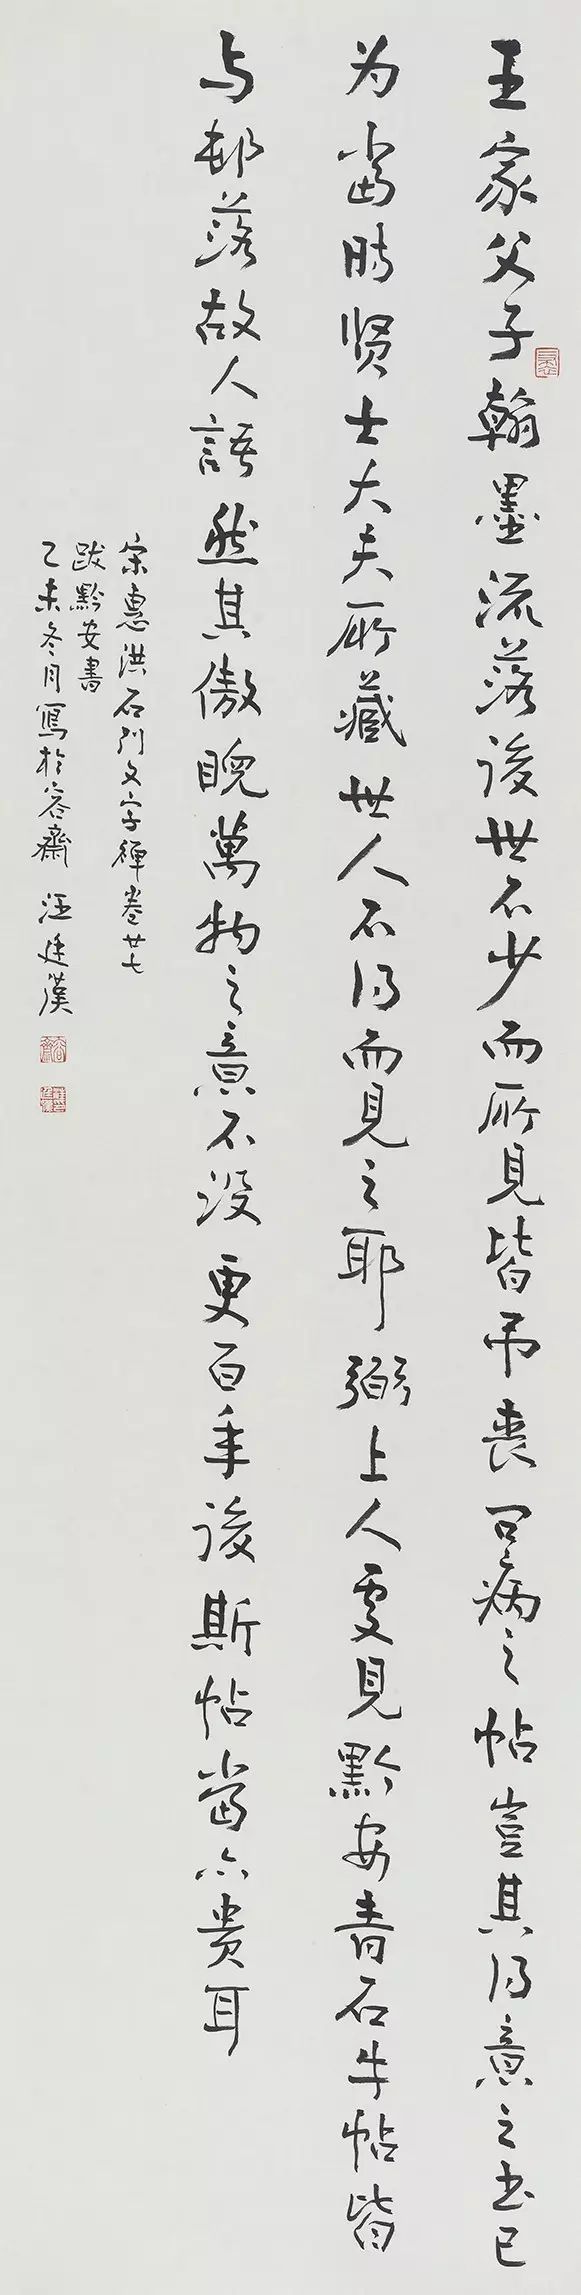 王家父子翰墨流落後世不少而所見皆吊喪问病之帖豈其得意之书已
为當时贤士大夫所藏世人不得而見之耶弼上人處見黔安青石牛帖皆
与邨落故人語然其傲睨萬物之意不没更百年後斯帖當亦贵耳
宋惠洪石门文字禪卷廿七
跋黔安書
乙未冬月寫於容齋 汪廷漢